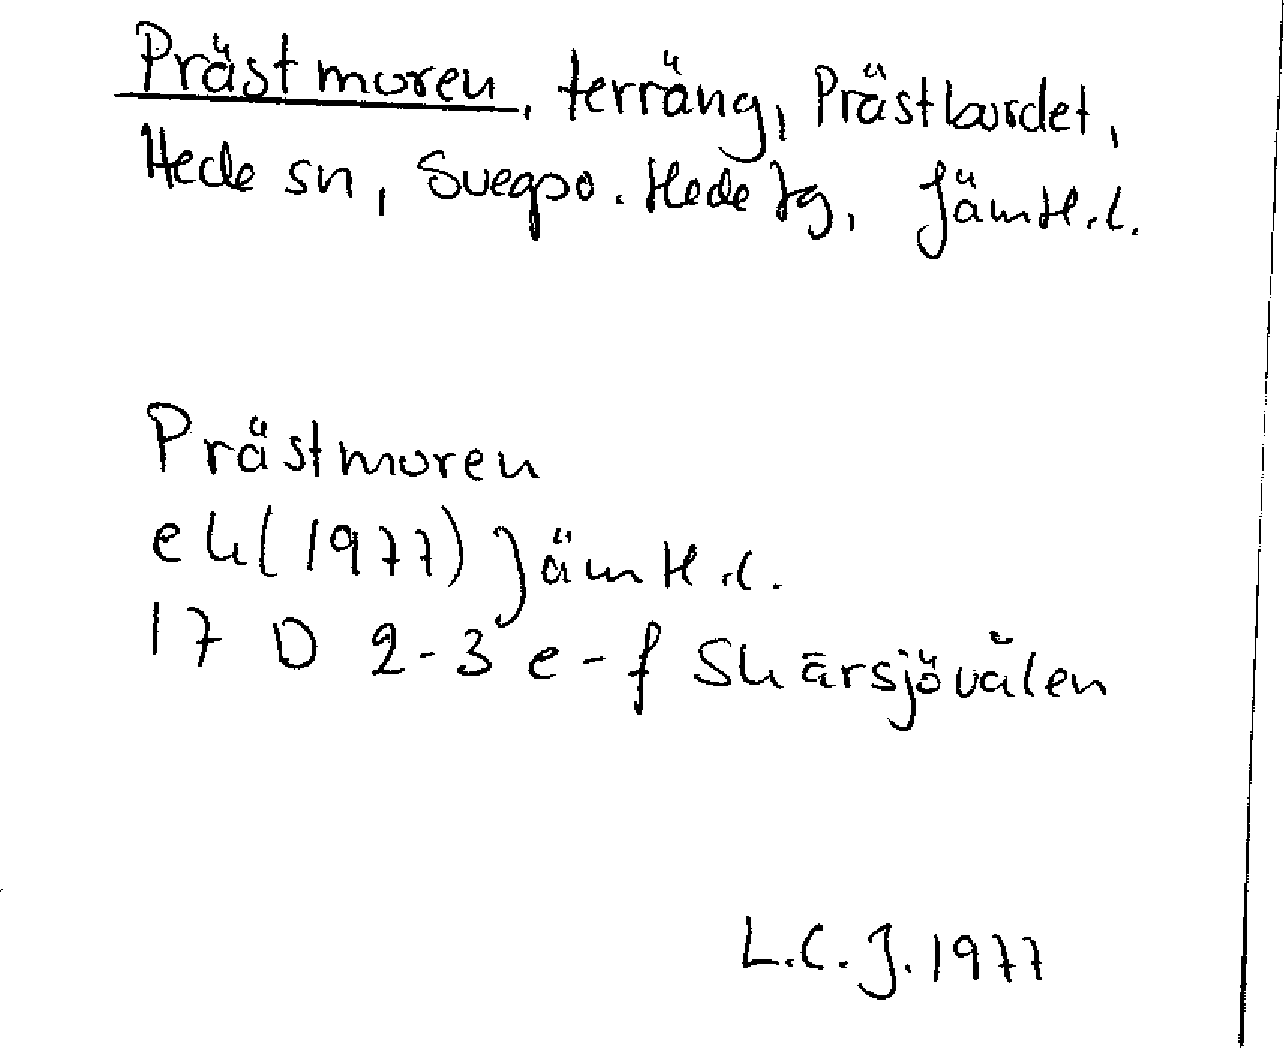 Prästmoren, terräng, Prästbordet,
Hede sn, Svegpo. Hede tg, Jämtl.l.
Prästmoren
ek (1977) Jämtl.l.
17 D 2-3 e-f Skärsjövålen
L.C.J. 1977